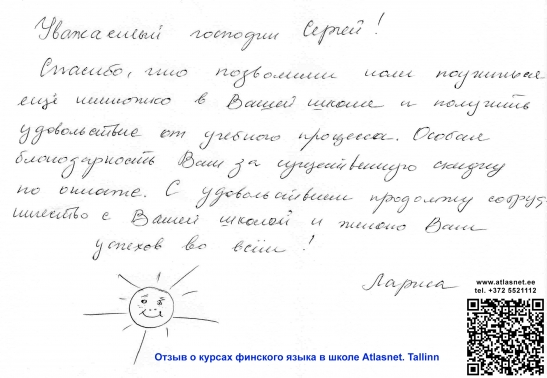 Уважаемый господин Сергей!
Спасибо, что позволили мне поучиться
ещё немножко в Вашей школе и получить
удовольствие от учебного процесса. Особая
благодарность Вам за существенную скидку
по оплате. С удовольствием продолжу сотруд-
ничество с Вашей школой и желаю Вам
успехов во всём!
Лариса
www.atlasnet.ee
tel. +372 5521112
Отзыв о курсах финского языка в школе Atlasnet. Tallinn